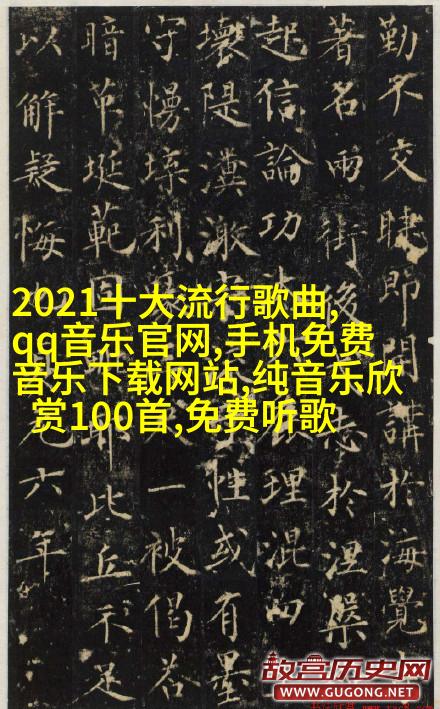 勤不交睫即聞講於海覺
著名兩街後志於涅槃
起信論功理混四
壞隄性或有墨
守慢利一被偈若
暗埏範因耶此丘示足
以解疑悔六年
2021十大流行歌曲,
qq音乐官网,手机免费
音乐下载网站,纯音乐欣
赏100首,免费听歌
故宫历史网
WWW.GUGONG.NET